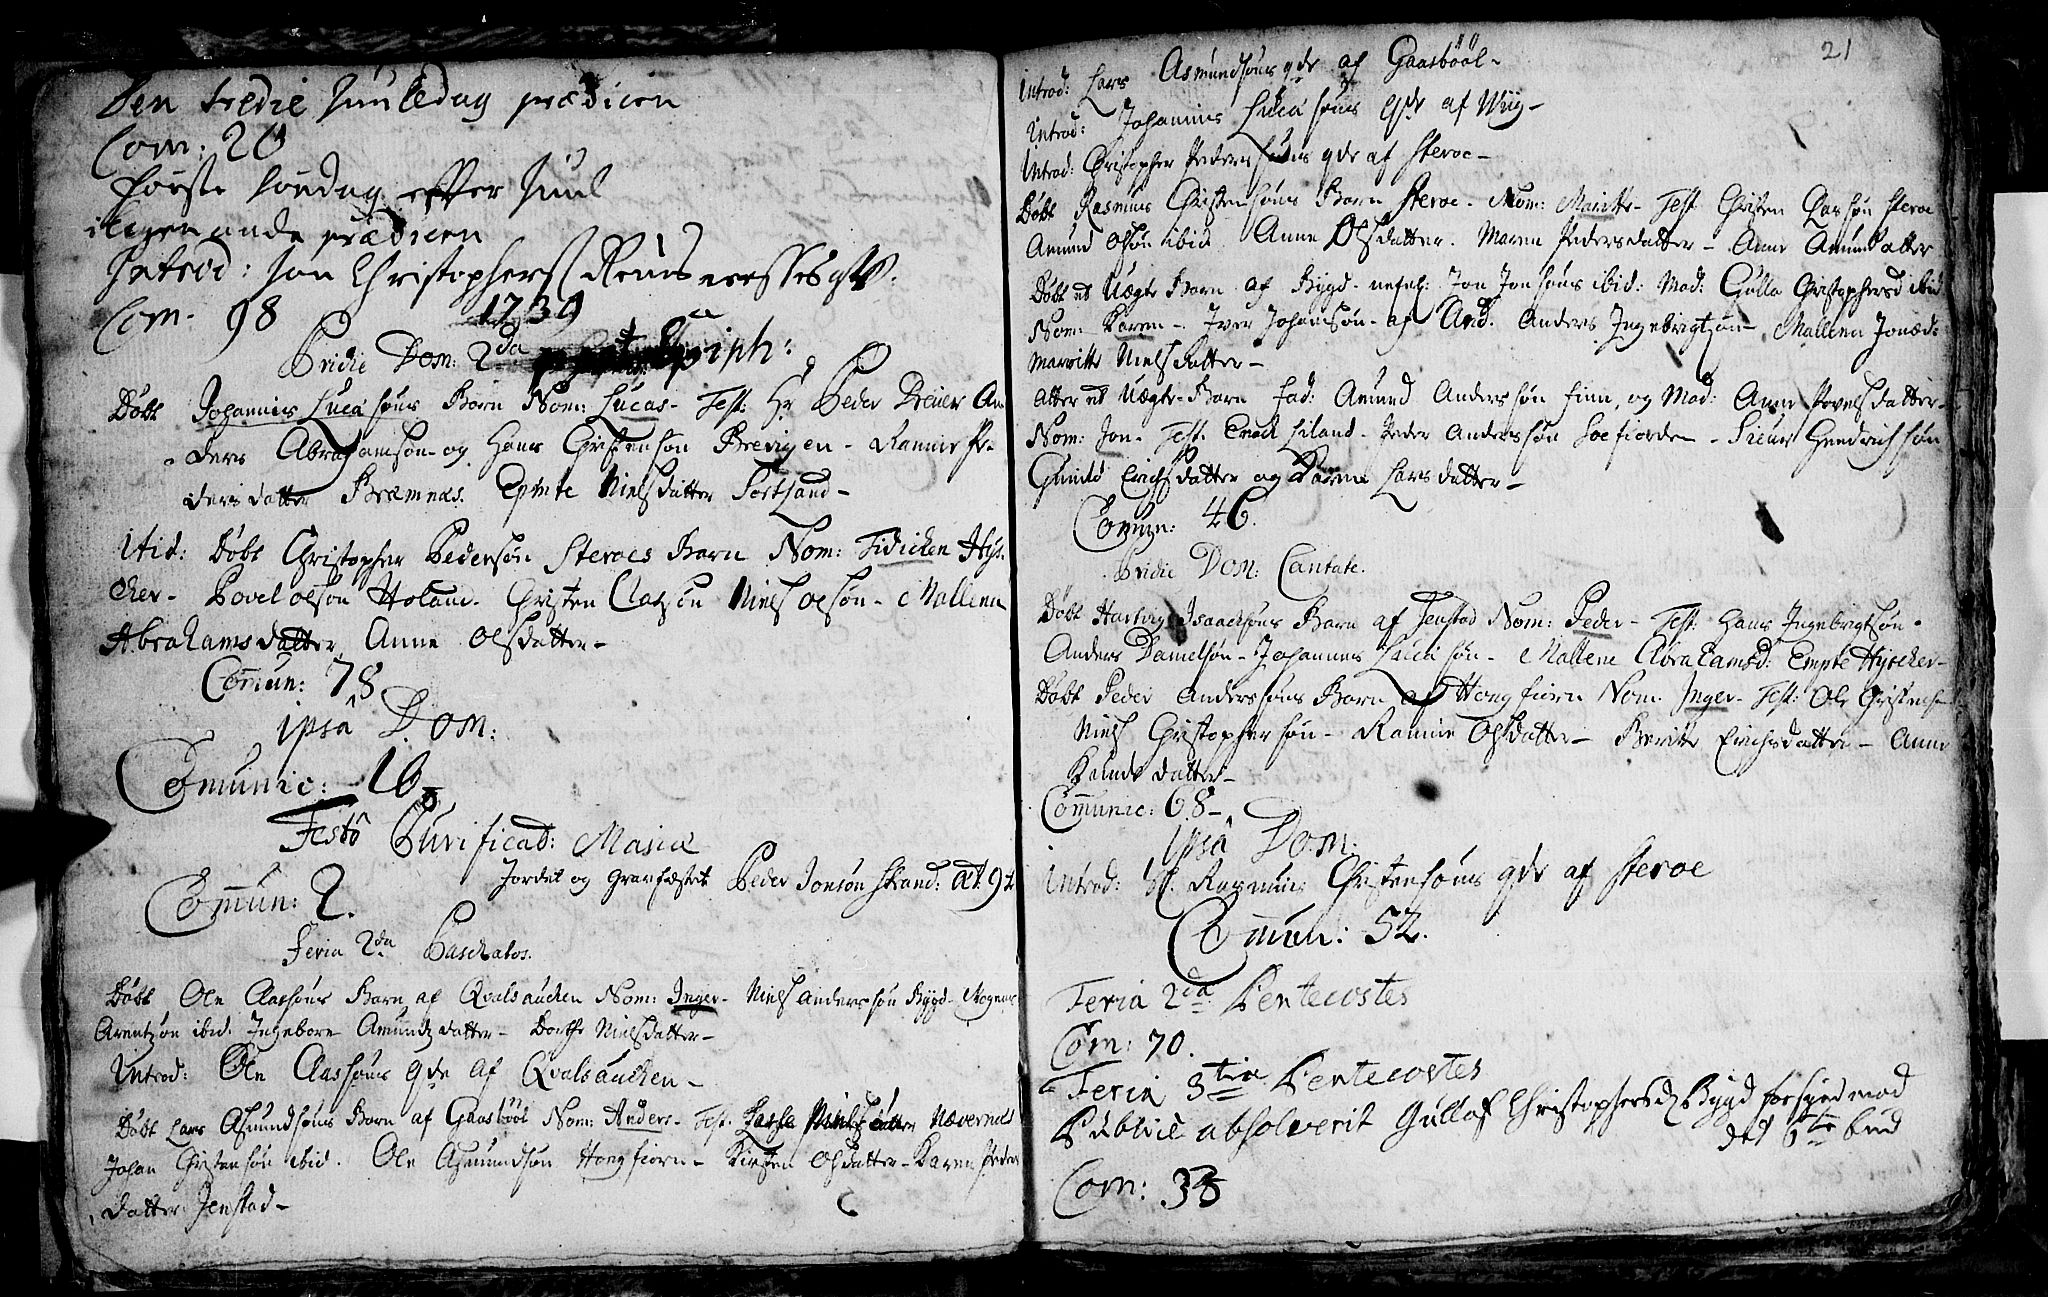 Den tredie Juuledag prædicen
Com: 20
første Søndag effter Juul
prædicen
Introd: Jon Christophers
Com. 98 1739
Pridie Dom: 2da Epiph:
Døbt Johannis Lucæsøns Barn Nom: Lucas- Test: Hr Peder Dreier An
ders Abrahamsøn og Hans Christensøn Brevigen - Rannie Pe-
ders datter Bramnæs. Epmte Nielsdatter Sortland-
Itid: Døbt Christopher Pedersøn Steroes Barn Nom: Tidichen Hys-
cher- Povel olsøn Holand. Christen Classøn Niels olsøn- Mallena
Abrahamsdatter Anne olsdatter-
Com̄un: 78
ipsâ Dom:
Com̄unic: 16
Festô Purificat: Mariæ
Jordet og Gravfæstet Peder Jonsøn Strand: æt. 92
Com̄un: 2.
Feria 2da Paschatos.
Døbt Ole Aassøns Barn af Qvalsauchen Nom: Inger- Niels anderssøn Bygd- Mogens
Arentzøn ibid. Ingebore Amundzdatter- Dorthe Nielsdatter-
Introd: Ole Aassøns qde af Qvalsauchen-
Døbt Lars Asmundsøns Barn af Gaasbøøl Nom: Anders- Test. Nævernæs
Johan Christensøn ibid. Ole Asmundsøn Hongfiorn- Kirsten Olsdatter- Karen Peders
datter Jenstad-
21
Introd: Lars Asmundsøns qde af Gaasbøøl-
Introd: Johannis Lucæsøns qde af Wiig-
Introd: Christopher Pedersøns qde af Steroe-
Døbt Rasmus Christensøns Barn Steroe- Nom: Maritte- Test Christen Larsøn Steroe
Amund Olsøn ibid Anne Olsdatter. Maren Pedersdatter- Anne Amunsdatter
Døbt et Uægte Barn af Bygd- nefnl: Jon Jonsøns ibid: Mod: Gulla Christophersd ibid
Nom: Karen- Iver Johansøn- af And. Anders Ingebrigtsøn- Mallena Jonæd:
Marritte Nielsdatter-
atter et Uægte-Barn fad: Amund Andersøn finn, og Mod: Anne Povelsdatter-
Nom: Jon- Test. Enock Liland- Peder Anderssøn Soefiorden- Siver Hendrichsøn
Gunild Erichsdatter og Karen Larsdatter-
Com̄un: 46.
Pridie Dom: Cantate.
Døbt Hartvig Isaachsøns Barn af Jenstad Nom: Peder- Test: Hans Ingebrigtsøn-
Anders Danielsøn- Johannes Lucæsøn- Mallene Abrahamsd: Empte Hyscher-
Døbt Peder Anderssøns Barn af Hongfiorn Nom. Inger- Test: Ole Christensø-
Niels Christophersøn- Rannie Olsdatter- Beritte Erichsdatter- Anne
datter-
Com̄unic: 68-
ipsâ Dom:
Introd: Rasmus Christensøns qde af Steroe
Com̄un: 52.
Feria 2da Pentecostes
Com: 70.
Feria 3tia Pentecostes
Publicè absolverit Gulla Christophersd Bygd forseed mod
det 6te bud
Com: 35